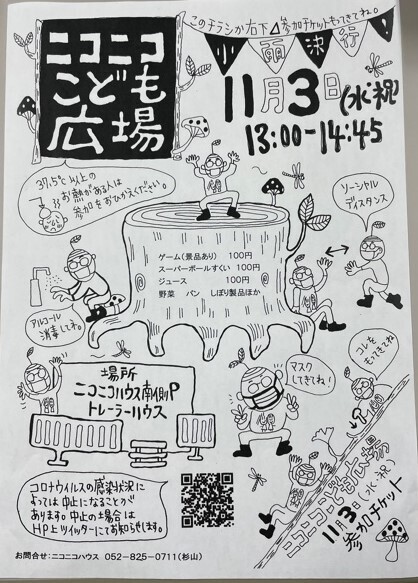 このチラシが右下△参加チケットもってきてね。
小雨決行!
ニコニコ
こども
広場
11月3日(水・祝)
13:00-14:45
37.5℃以上の
お熱がある人は
参加をおひかえください。
ソーシャル
ディスタンス
ゲーム(景品あり) 100円
スーパーボールすくい 100円
ジュース 100円
野菜 パン しぼり製品ほか
アルコール
消毒してね。
場所
ニコニコハウス南側P
トレーラーハウス
マスク
してきてね!
コレを
もってきてね
コロナウイルスの感染状況に
よっては中止になることが
あります。中止の場合は
HP上ツイッターにてお知らせします。
ニコニコこども広場
11月3日(水・祝)
参加チケット
お問合せ:ニコニコハウス 052-825-0711(杉山)